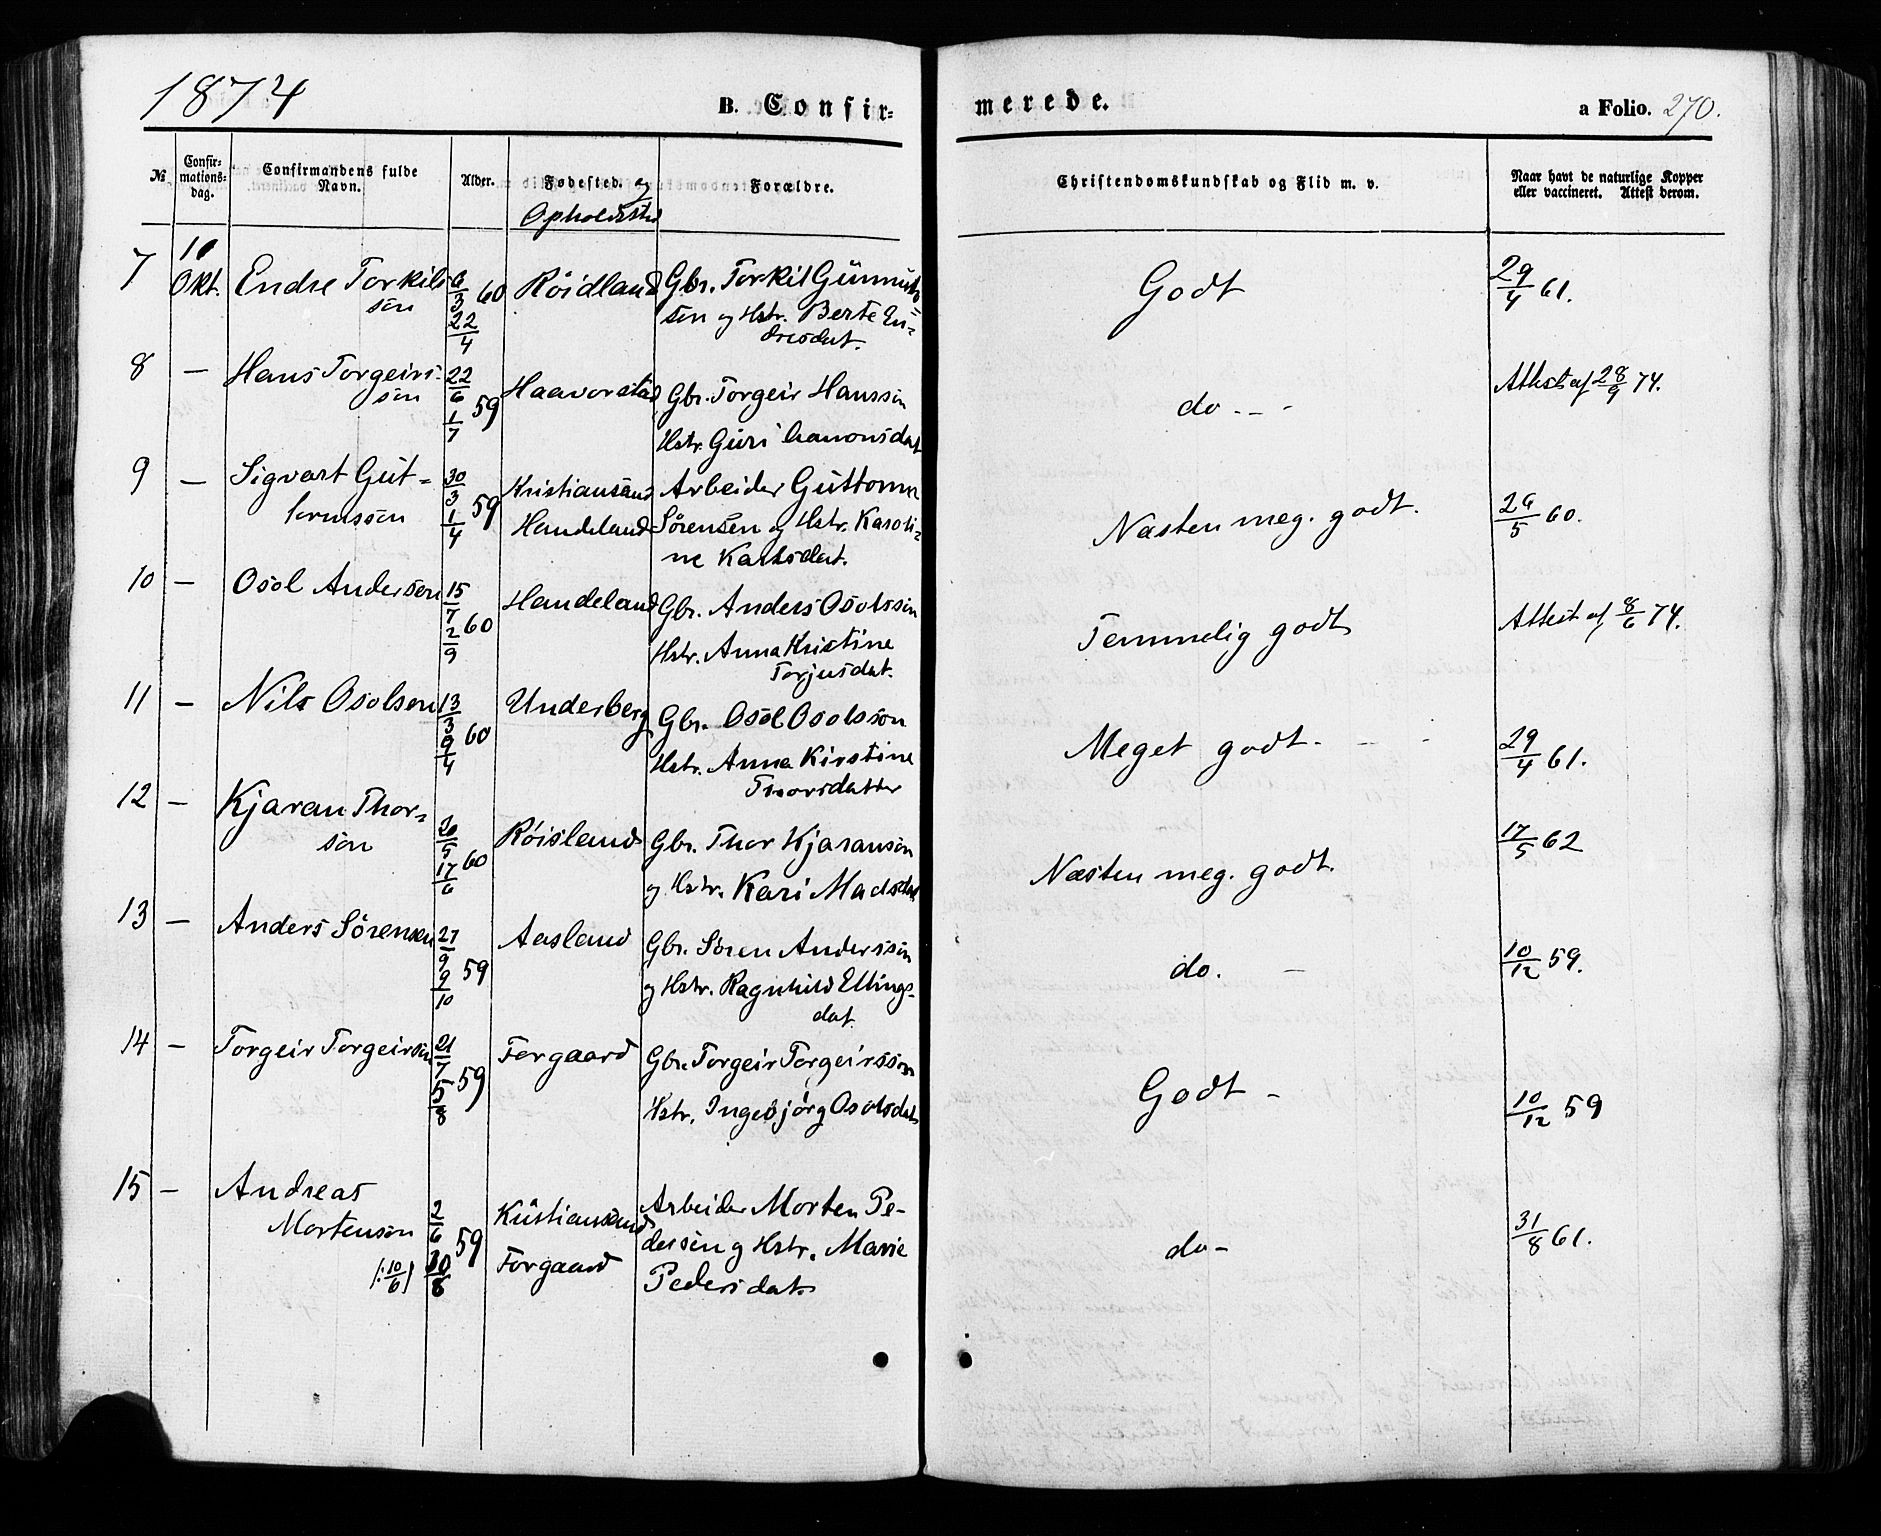 1874
B. Confir=
merede.
a Folio. 270.
№
Confir=
mations=
dag.
Confirmandens fulde
Navn.
Alder.
Fødested. og
Opholdssted
Forældre.
Christendomskundskab og Flid m. v.
Naar havt de naturlige Kopper
eller vaccineret. Attest derom.
7
10
Okt.
Endre Torkils
sön
6/3 60
22/4
Röidland
Gbr. Torkil
sön og Hstr. Berte En=
dresdat.
Godt
29/4 61.
8 —
Hans Torgeirs=
sön
22/6 59
1/7
Haavorstad
Gbr. Torgeir Hanssön
Hstr. Guri Aanonsdat
do. - -
Attest af 28/9 74.
9 —
Sigvart Gut=
tormsön
30/3 59
1/4
Kristiansand
Handeland
Arbeider Guttorm
Sörensen og Hstr. Karoli=
ne Karlsdat.
Næsten meg. godt.
26/5 60.
10 —
Osol Andersen
15/7 60
2/9
Handeland
Gbr. Anders Osolssön
Hstr. Anna Kristine
Torjusdat.
Temmelig godt
Attest af 8/6 74.
11 —
Nils Osolsen
13/3 60
9/4
Underberg
Gbr. Osol Osolssön
Hstr. Anna Kirstine
Thorsdatter
Meget godt. - -
29/4 61.
12 —
Kjaran Thor=
sön
30/5 60
17/6
Röisland
Gbr. Thor Kjaransön
og Hstr. Kari Madsdat
Næsten meg. godt.
17/5 62
13 —
Anders Sörensen
27/9 59
9/10
Aasland
Gbr. Sören Anderssön
og Hstr. Ragnhild Ellings=
dat.
do. -
10/12 59.
14 —
Torgeir Torgeirsön
21/7 59
5/8
Forgaard
Gbr. Torgeir Torgeirssön
Hstr. Ingebjörg Osolsdat
Godt -
10/12 59
15 —
Andreas
Mortensön
/: 10/6 /
2/6 59
30/8
Kristiansand
Forgaard
Arbeider Morten Pe-
dersen og Hstr. Marie
Pedersdat.
do -
31/8 61.